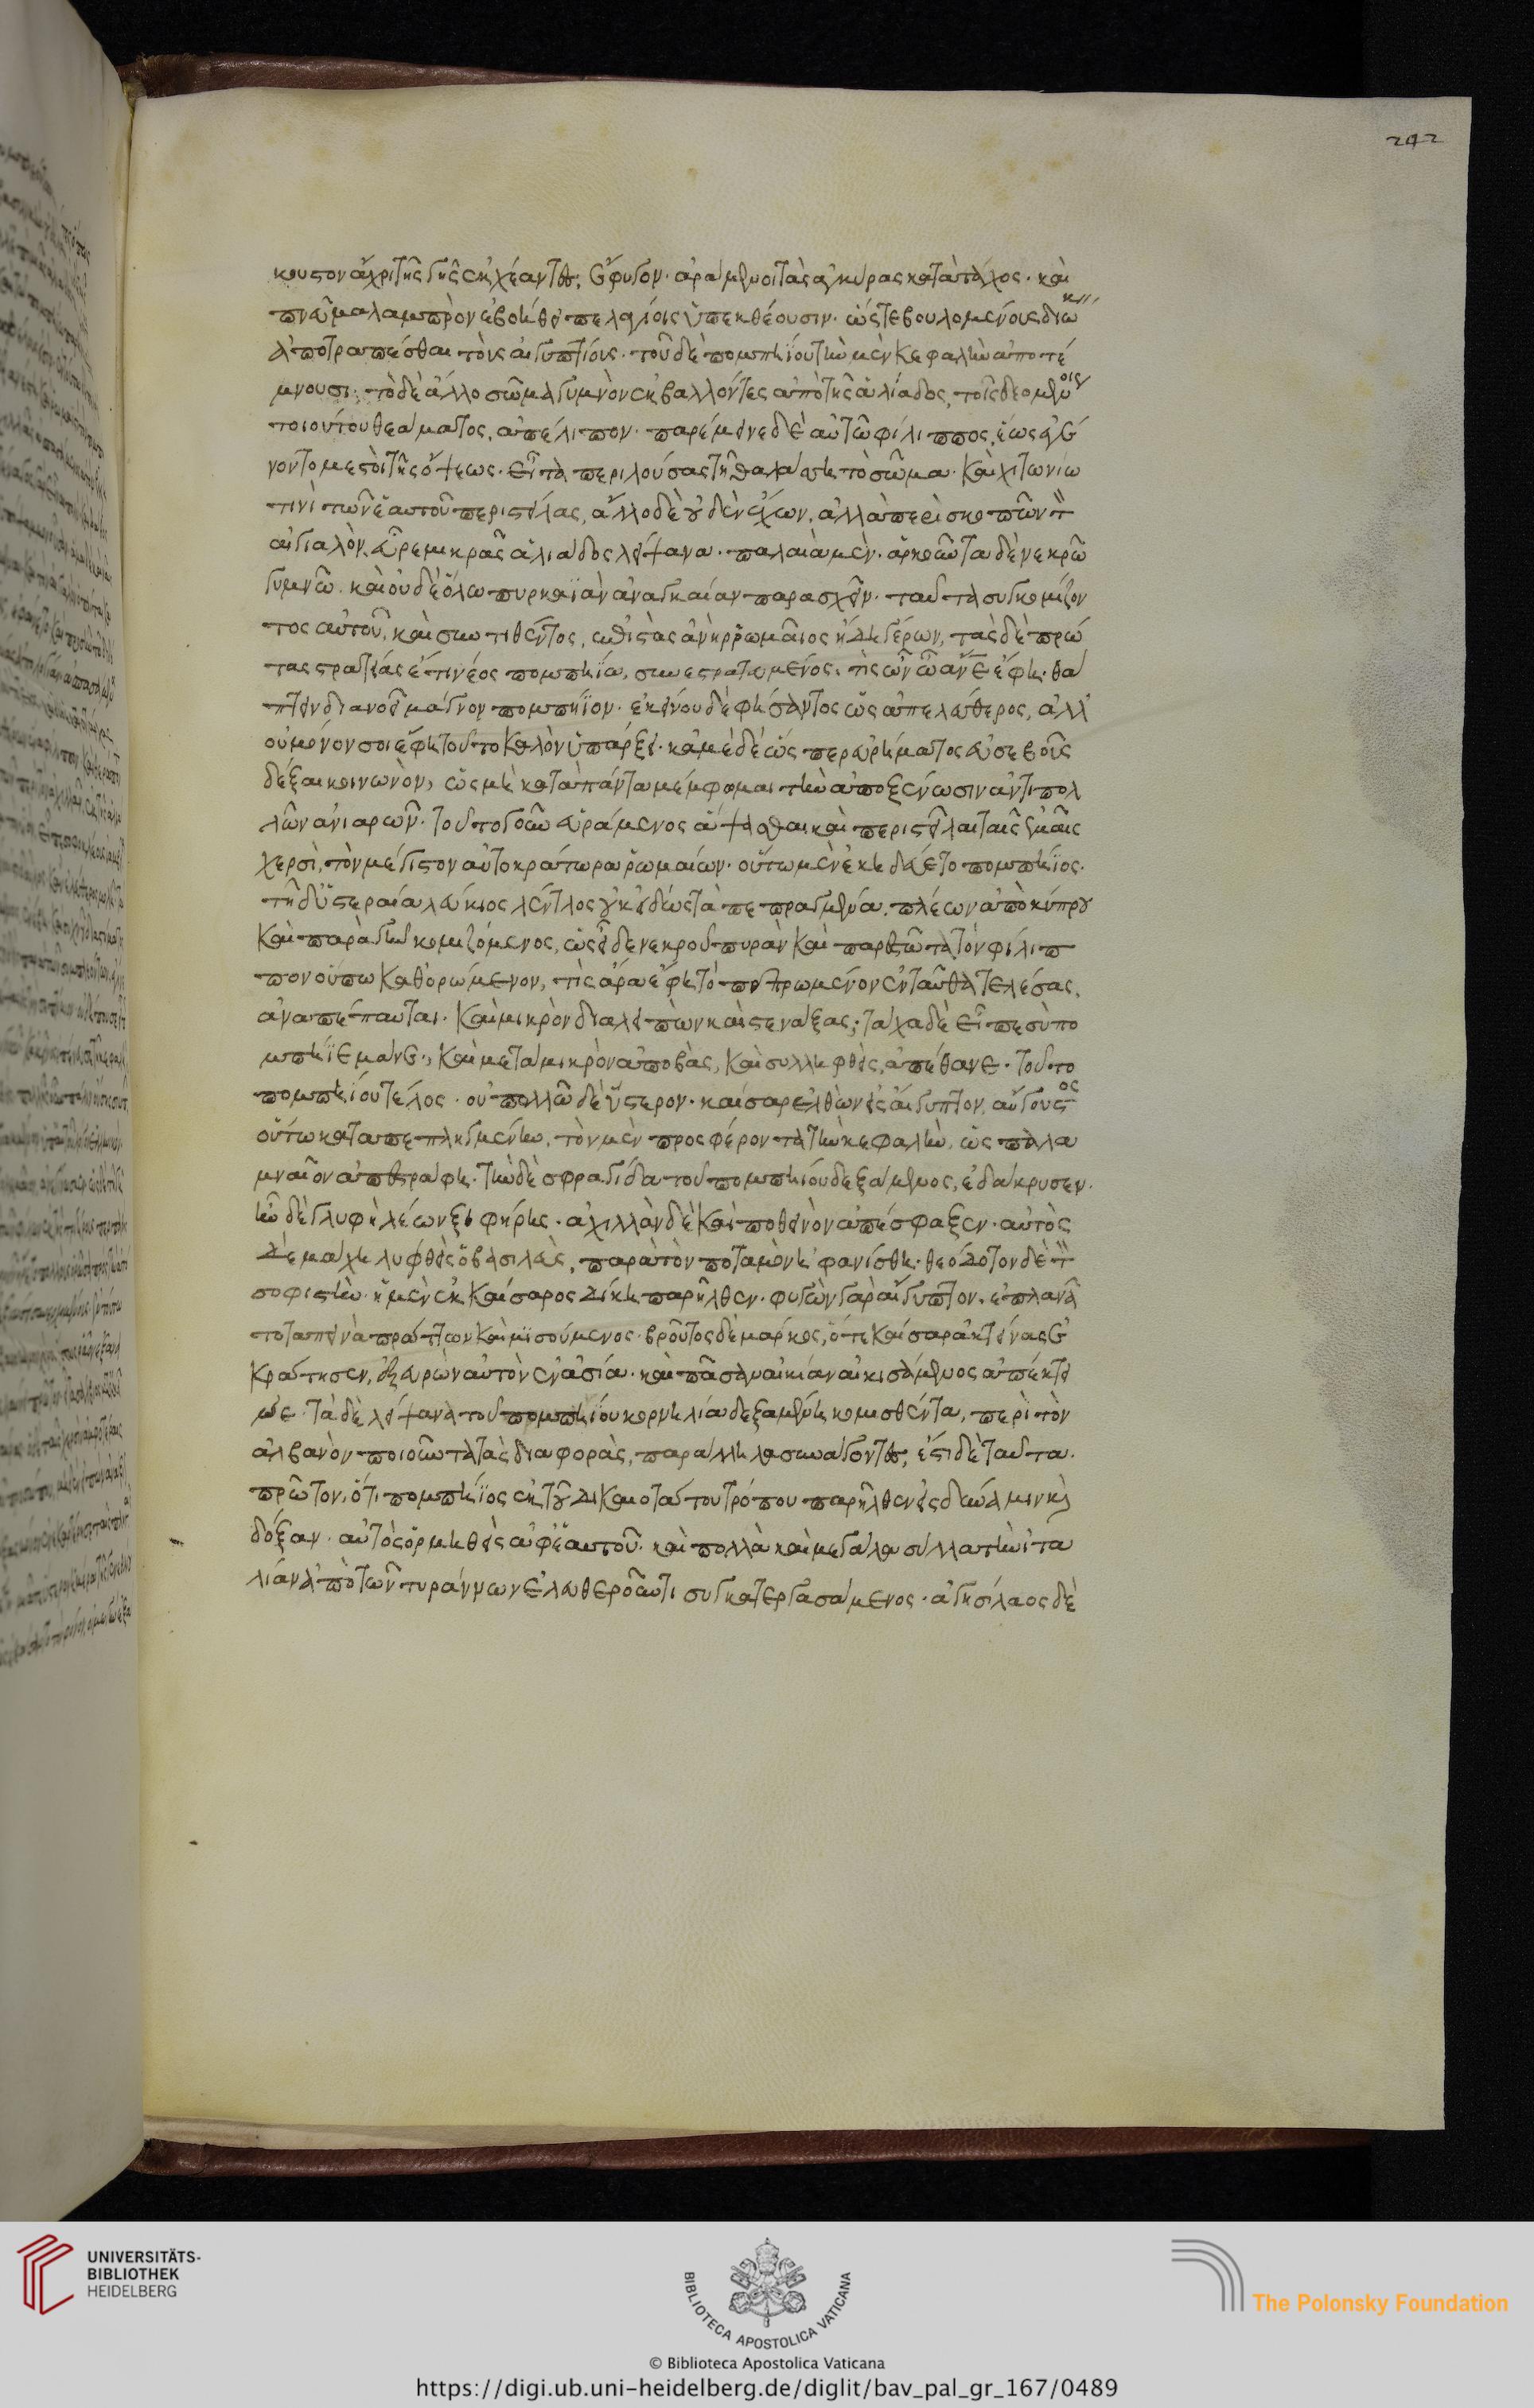 242
κουστον ἄχρι τῆς γῆς ἐκχέαντες, ἔφυγον· ἀράμενοι τὰς ἀγκύρας κατὰ τάχος· καὶ
πνεῦμα λαμπρὸν ἐβοήθει πελαγίοις ὑπεκθέουσιν· ὥστε βουλομένους διώκειν
ἀποτραπέσθαι τοὺς αἰγυπτίους· τοῦ δὲ πομπηίου τὴν μὲν κεφαλὴν ἀποτέ
μνουσι· τὸ δὲ ἄλλο σῶμα γυμνὸν ἐκβαλλόντες ἀπὸ τῆς ἁλιάδος, τοῖς δεομένοις
τοιούτου θεάματος, ἀπέλιπον· παρέμεινε δὲ αὐτῶ φίλιππος, ἕως ἐγέ
νοντο μεστοὶ τῆς ὄψεως· εἶτα περιλούσας τῆ θαλάσση τὸ σῶμα· καὶ χιτωνίω
τινὶ τῶν ἑαυτοῦ περιστείλας, ἄλλο δὲ οὐδὲν ἔχων, ἀλλὰ περισκοπῶν τὸν
αἰγιαλὸν, εὗρε μικρᾶς ἁλιάδος λείψανα· παλαιὰ μὲν· ἀρκοῦντα δὲ νεκρῶ
γυμνῶ· καὶ οὐδὲ ὅλω πυρκαϊὰν ἀναγκαίαν παρασχεῖν· ταῦτα συγκομίζον
τος αὐτοῦ, καὶ συντιθέντος, ἐπιστὰς ἀνὴρ ῥωμαῖος ἤδη γέρων, τὰς δὲ πρώ
τας στρατείας ἔτι νέος πομπηίω, συνεστρατευμένος· τίς ὢν ὦ ἄνθρωπε ἔφη· θά
πτειν διανοεῖ μάγνον πομπήϊον· ἐκείνου δὲ φήσαντος ὡς ἀπελεύθερος, ἀλλ'
οὐ μόνον σοι ἔφη τοῦτο τὸ καλὸν ὑπάρξει· κἀμὲ δὲ ὥσπερ εὑρήματος εὐσεβοῦς
δέξαι κοινωνὸν, ὡς μὴ κατὰ πάντα μέμφομαι τὴν ἀποξένωσιν ἀντὶ πολ
λῶν ἀνιαρῶν· τοῦτο γοῦν εὑράμενος ἅψασθαι καὶ περιστεῖλαι ταῖς ἐμαῖς
χερσὶ, τὸν μέγιστον αὐτοκράτωρα ῥωμαίων· οὕτω μὲν ἐκηδεύετο πομπήϊος·
τῆ δ' ὑστεραία λεύκιος λέντλος οὐκ εἰδὼς τὰ πεπραγμένα, πλέων ἀπὸ κύπρου
καὶ παρὰ γῆν κομιζόμενος, ὡς εἶδε νεκροῦ πυρὰν καὶ παρεστῶτα τὸν φίλιπ
πον οὔπω καθορώμενον, τίς ἄρα ἔφη τὸ πεπρωμένον ἐνταῦθα τελέσας,
ἀναπέπαυται· καὶ μικρὸν διαλειπὼν καὶ στενάξας· τάχα δὲ εἶπε σὺ πο
μπήϊε μάγνε·, καὶ μετὰ μικρὸν ἀποβὰς, καὶ συλληφθεὶς, ἀπέθανε· τοῦτο
πομπηίου τέλος· οὐ πολλῶ δὲ ὕστερον· καίσαρ ἐλθὼν εἰς αἴγυπτον, ἄγους
οὕτω καταπεπλησμένην, τὸν μὲν προσφέροντα τὴν κεφαλὴν, ὡς παλα
μναῖον ἀπεστράφη· τὴν δὲ σφραγίδα τοῦ πομπηίου δεξάμενος, ἐδάκρυσεν·
ἦν δὲ γλυφὴ λέων ξιφήρης· ἀχιλλὰν δὲ καὶ ποθεινὸν ἀπέσφαξεν· αὐτὸς
δὲ μάχη λυφθεὶς ὁ βασιλεὺς, παρὰ τὸν ποταμὸν ἠφανίσθη· θεόδοτον δὲ τὸν
σοφιστὴν· ἡ μὲν ἐκ καίσαρος δίκη παρῆλθεν· φυγὼν γὰρ αἴγυπτον, ἐπλανᾶ
το ταπεινὰ πράττων καὶ μισούμενος· βροῦτος δὲ μάρκος, ὅτε καίσαρα κτείνας ἐ
κράτησεν, ἐξευρὼν αὐτὸν ἐν ἀσία· καὶ πᾶσαν αἰκίαν αἰκισάμενος ἀπέκτει
νε· τὰ δὲ λείψανα τοῦ πομπηίου κορνηλία δεξαμένη κομισθέντα, περὶ τὸν
ἀλβανὸν ποιοῦντα τὰς διαφορὰς, παράλληλα συνάγοντες, ἔστι δὲ ταῦτα·
πρῶτον, ὅτι πομπήϊος ἐκ τοῦ δικαιοτάτου τρόπου παρῆλθεν εἰς δύναμιν καὶ
δόξαν· αὐτὸς ὁρμηθεὶς ἀφ' ἑαυτοῦ· καὶ πολλὰ καὶ μεγάλα σύλλα τὴν ἰτα
λίαν ἀπὸ τῶν τυράννων ἐλευθεροῦντι συγκατεργασάμενος· ἀγησίλαος δὲ
UNIVERSITÄTS-
BIBLIOTHEK
HEIDELBERG
BIBLIOTECA APOSTOLICA VATICANA
The Polonsky Foundation
© Biblioteca Apostolica Vaticana
https://digi.ub.uni-heidelberg.de/diglit/bav_pal_gr_167/0489